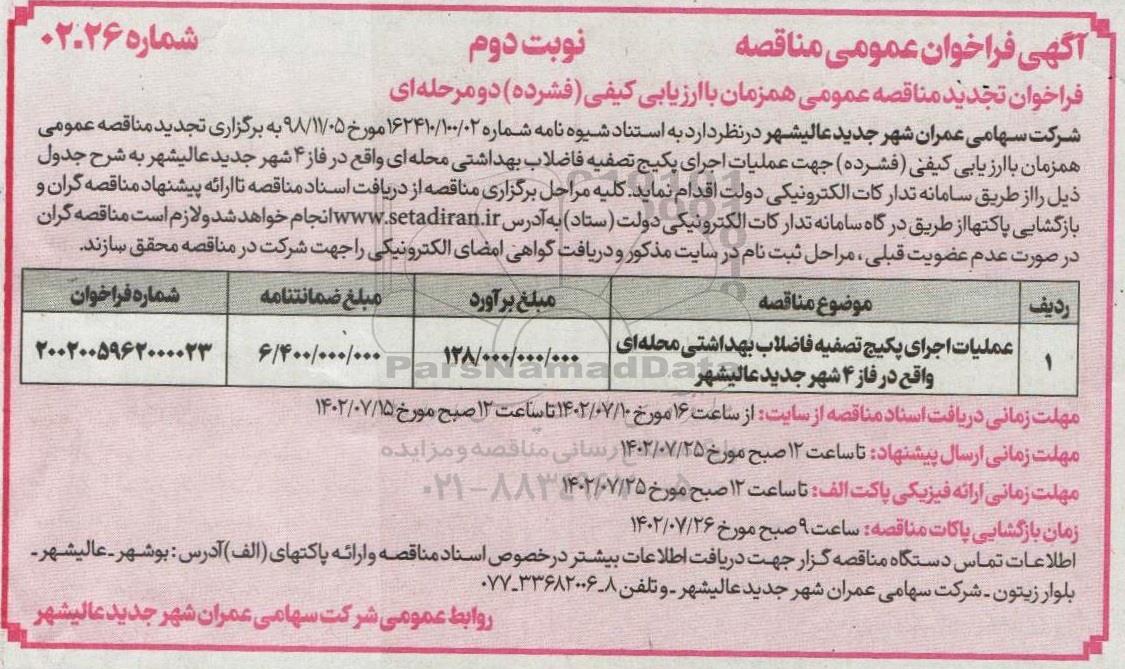 آگهی فراخوان عمومی مناقصه نوبت دوم شماره ۰۲.۲۶
فراخوان تجدید مناقصه عمومی همزمان با ارزیابی کیفی (فشرده) دو مرحله ای
شرکت سهامی عمران شهر جدید عالیشهر در نظر دارد به استناد شیوه نامه شماره ۱۶۲۴۱۰/۱۰۰/۰۲ مورخ ۹۸/۱۱/۰۵ به برگزاری تجدید مناقصه عمومی
همزمان با ارزیابی کیفی (فشرده) جهت عملیات اجرای پکیج تصفیه فاضلاب بهداشتی محله ای واقع در فاز ۴ شهر جدید عالیشهر به شرح جدول
ذیل را از طریق سامانه تدارکات الکترونیکی دولت اقدام نماید. کلیه مراحل برگزاری مناقصه از دریافت اسناد مناقصه تا ارائه پیشنهاد مناقصه گران و
بازگشایی پاکتها از طریق درگاه سامانه تدارکات الکترونیکی دولت (ستاد) به آدرس www.setadiran.ir انجام خواهد شد و لازم است مناقصه گران
در صورت عدم عضویت قبلی، مراحل ثبت نام در سایت مذکور و دریافت گواهی امضای الکترونیکی را جهت شرکت در مناقصه محقق سازند.
ردیف موضوع مناقصه مبلغ برآورد مبلغ ضمانتنامه شماره فراخوان
۱ عملیات اجرای پکیج تصفیه فاضلاب بهداشتی محله ای ۱۲۸/۰۰۰/۰۰۰/۰۰۰ ۶/۴۰۰/۰۰۰/۰۰۰ ۲۰۰۲۰۰۵۹۶۲۰۰۰۰۲۳
واقع در فاز ۴ شهر جدید عالیشهر
ParsNamadData
مهلت زمانی دریافت اسناد مناقصه از سایت: از ساعت ۱۶ مورخ ۱۴۰۲/۰۷/۱۰ تا ساعت ۱۲ صبح مورخ ۱۴۰۲/۰۷/۱۵
مهلت زمانی ارسال پیشنهاد: تا ساعت ۱۲ صبح مورخ ۱۴۰۲/۰۷/۲۵
رسانی مناقصه و مزایده
مهلت زمانی ارائه فیزیکی پاکت الف: تا ساعت ۱۲ صبح مورخ ۱۴۰۲/۰۷/۲۵
زمان بازگشایی پاکات مناقصه: ساعت ۹ صبح مورخ ۱۴۰۲/۰۷/۲۶
اطلاعات تماس دستگاه مناقصه گزار جهت دریافت اطلاعات بیشتر در خصوص اسناد مناقصه و ارائه پاکتهای (الف) آدرس: بوشهر - عالیشهر -
بلوار زیتون - شرکت سهامی عمران شهر جدید عالیشهر - و تلفن ۸-۳۳۶۸۲۰۰۶-۰۷۷
روابط عمومی شرکت سهامی عمران شهر جدید عالیشهر